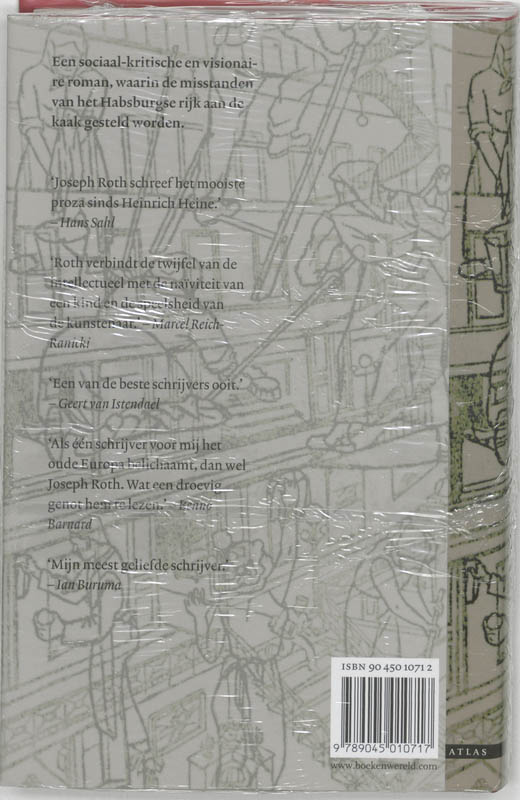 Een sociaal-kritische en visionai-
re roman, waarin de misstanden
van het Habsburgse rijk aan de
kaak gesteld worden.
‘Joseph Roth schreef het mooiste
proza sinds Heinrich Heine.’
– Hans Sahl
‘Roth verbindt de twijfel van de
intellectueel met de naïviteit van
een kind en de speelsheid van
de kunstenaar.’ – Marcel Reich-
Ranicki
‘Een van de beste schrijvers ooit.’
– Geert van Istendael
‘Als één schrijver voor mij het
oude Europa belichaamt, dan wel
Joseph Roth. Wat een droevig
genot hem te lezen.’ – Benno
Barnard
‘Mijn meest geliefde schrijver.’
– Ian Buruma
ISBN 90 450 1071 2
9 789045 010717
www.boekenwereld.com
ATLAS